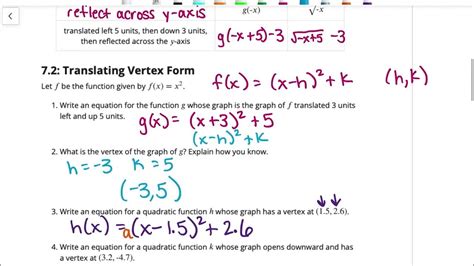 reflect across y-axis
g(-x)
√-x
translated left 5 units, then down 3 units,
then reflected across the y-axis
g(-x+5)-3
√-x+5 -3
7.2: Translating Vertex Form
Let f be the function given by f(x) = x².
f(x) = (x-h)² + k
(h,k)
1. Write an equation for the function g whose graph is the graph of f translated 3 units
left and up 5 units.
g(x) = (x+3)² + 5
(x-h)² + k
2. What is the vertex of the graph of g? Explain how you know.
h = -3 k = 5
(-3,5)
3. Write an equation for a quadratic function h whose graph has a vertex at (1.5, 2.6).
h(x) = a(x-1.5)² + 2.6
4. Write an equation for a quadratic function k whose graph opens downward and has
a vertex at (3.2, -4.7).